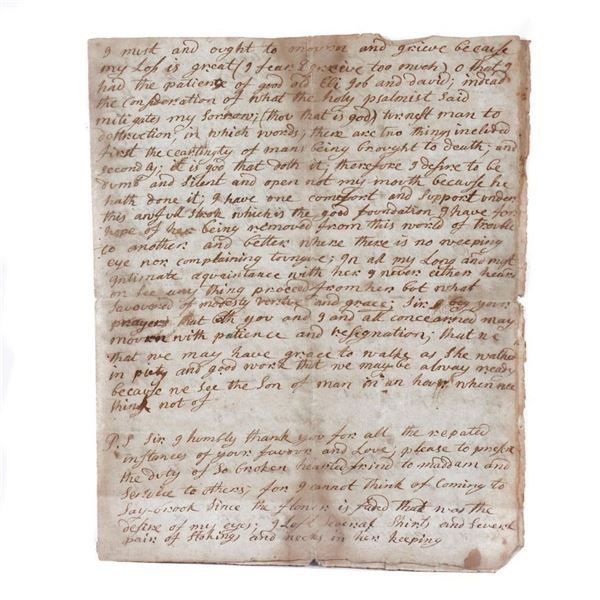 I must and ought to mourn and grieve because
my Loss is great (I fear I greive too much) o that I
had the patience of good old Eli Job and david; indeed
the Consideration of what the holy psalmist Said
mitigates my Sorrow; (thou that is god) turnest man to
destruction in which words, there are two things included
first the certainty of mans being brought to death; and
secondly, it is god that doth it, therefore I desire to be
dumb and Silent and open not my mouth because he
hath done it; I have one comfort and Support under
this awfull Strok which is the good foundation I have for
hope of her being removed from this world of trouble
to another and better where there is no weeping
eye nor complaining toungue; In all my Long and most
Intimate aqueintance with her I never either heard
or See any thing proceed from her but what
favoured of modesty vertue and grace; Sir I beg your
prayers that you and I and all concearned may
mourn with patience and resignation, that we
that we may have grace to walk as She walked
in piety and good work that we may be alway ready
because we See the Son of man in an hour when we
think not of
P.S Sir I humbly thank you for all the repated
instances of your favour and Love, please to
the duty of So broken hearted frind to maddam and
Service to others; for I cannot think of Coming to
Say-brook Since the flower is faded that was the
desire of my eyes; I Left Several Shirts and Severl
pair of Stokings and necks in her keeping